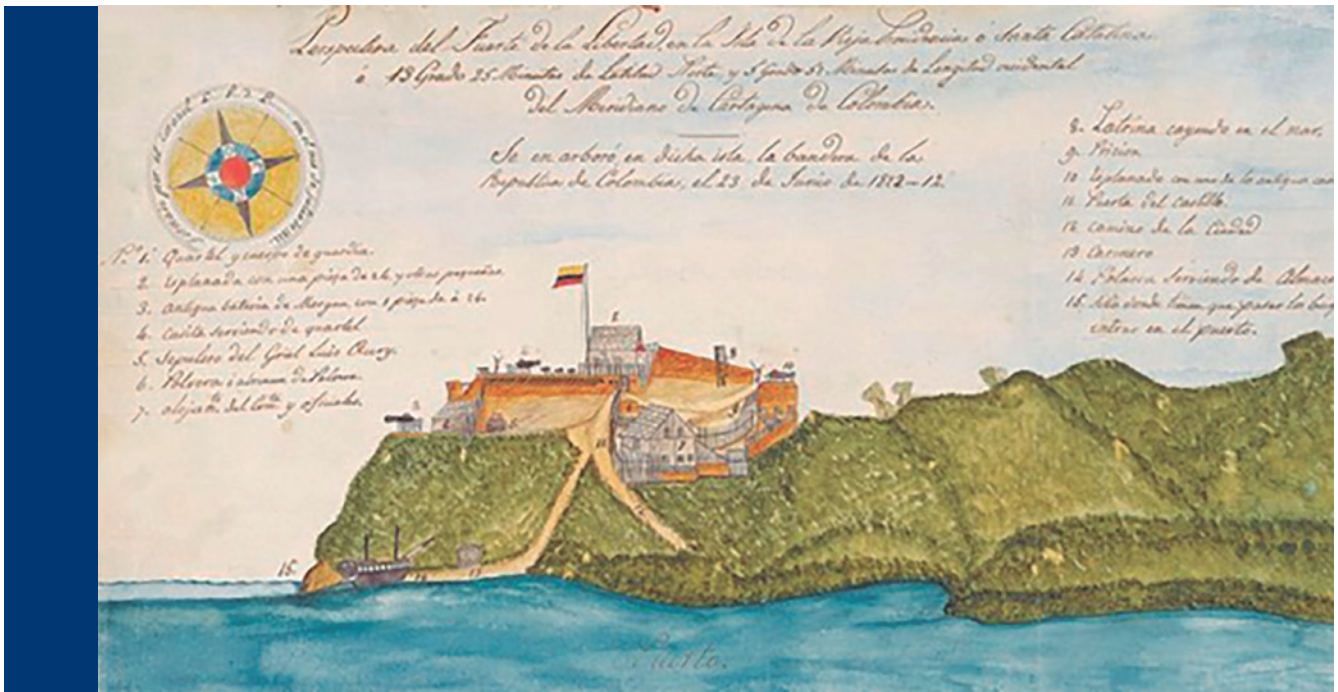 Perspectiva del Fuerte de la Libertad, en la Isla de la Vieja Providencia ó Santa Catalina.
á 13 Grado 25 Minutos de Latitud Norte, y 5 Grados 51 Minutos de Longitud occidental
del Meridiano de Cartagena de Colombia.
Se enarboró en dicha isla la bandera de la
Republica de Colombia, el 23 de Junio de 1822-12.
Nº 1. Quartel y cuerpo de guardia.
2. esplanada con una pieza de 24 y otras pequeñas
3. antigua bateria de Morgan con 1 pieza de á 24.
4. casita serviendo de quartel
5. Sepulcro del Gral Luis Aury.
6. Polvora i almacn de Polvora
7. alojamto. del Comte. y oficiales.
8. Latrina cayendo en el mar.
9. Pricion
10 esplanada con una de la antigua
11. Puerta del castillo.
12 camino de la Ciudad
13
14 Polacra serviendo de Almac
15. donde tienen que pasar los
entrar en el puerto.
2
3
8
10
15
Puerto.